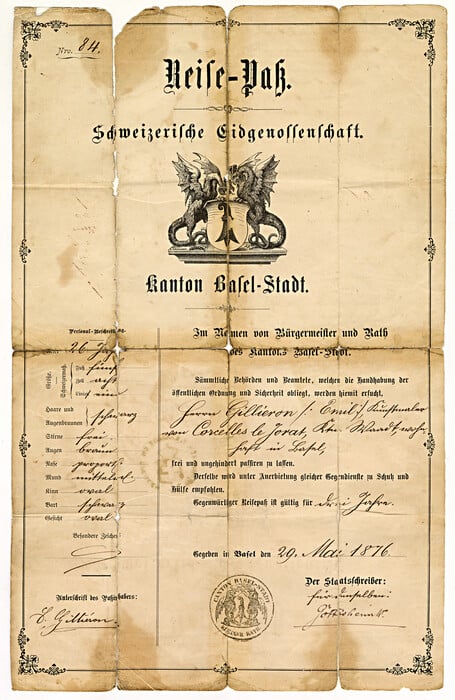 Nro. 84.
Reise-Paß.
Schweizerische Eidgenossenschaft.
Kanton Basel-Stadt.
Personal-Beschreibung.
26 Jahr
Größe. Schweizermaß.
Fuß fünf
Zoll acht
Linien ein
Haare und
Augenbraunen schwarz
Stirne frei.
Augen braun
Nase proport.
Mund mittel
Kinn oval
Bart schwarz
Gesicht oval
Besondere Zeichen
Unterschrift des Paßinhabers:
E. Gilliéron.
Im Namen von Bürgermeister und Rath
des Kantons Basel-Stadt.
Sämmtliche Behörden und Beamtete, welchen die Handhabung der
öffentlichen Ordnung und Sicherheit obliegt, werden hiemit ersucht,
Herrn Gilliéron /: Emil :/, Kunstmaler
von Corcelles le Jorat, Ktn. Waadt, wohn-
haft in Basel,
frei und ungehindert passiren zu lassen.
Derselbe wird unter Anerbietung gleicher Gegendienste zu Schutz und
Hülfe empfohlen.
Gegenwärtiger Reisepaß ist gültig für drei Jahre.
Gegeben in Basel den 29. Mai 1876.
Der Staatsschreiber:
für denselben:
KANTON BASEL-STADT